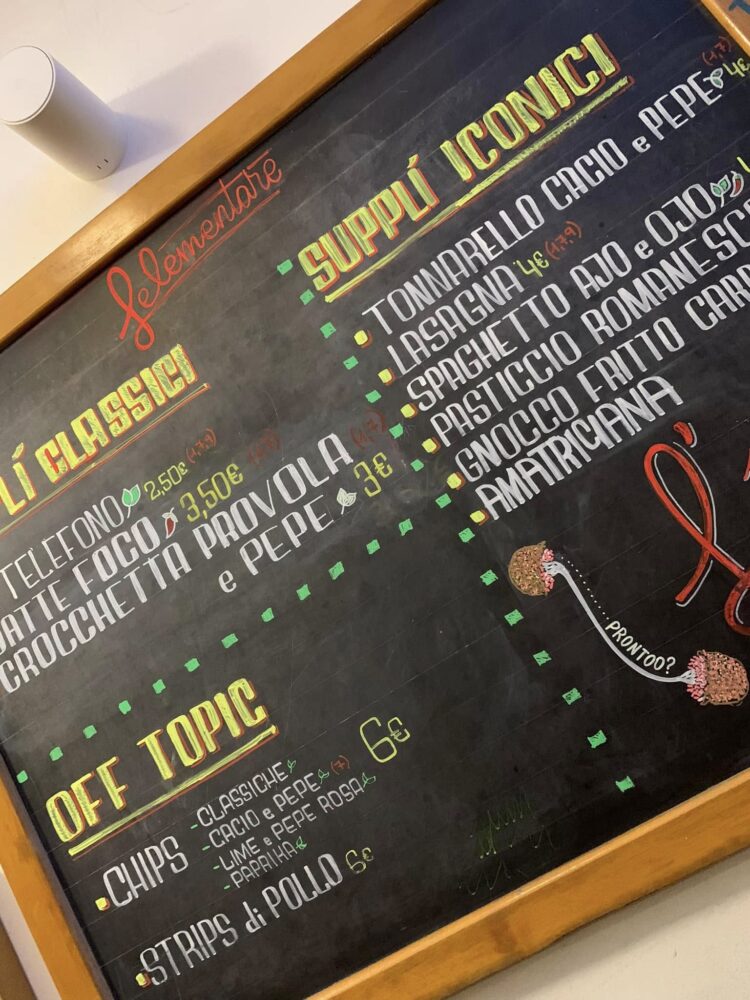 Felementare
LÍ CLASSICI
TELEFONO 2,50€ (1,7,9)
FOCO 3,50€
CROCCHETTA PROVOLA (1,7)
e PEPE 3€
SUPPLÍ ICONICI
TONNARELLO CACIO e PEPE (1,7) 4€
LASAGNA 4€ (1,7,9)
SPAGHETTO AJO e OJO
PASTICCIO ROMANESC
GNOCCO FRITTO CAR
AMATRICIANA
PRONTOO?
OFF TOPIC
CHIPS 6€
-CLASSICHE
-CACIO e PEPE (7)
-LIME e PEPE ROSA
-PAPRIKA
STRIPS di POLLO 6€